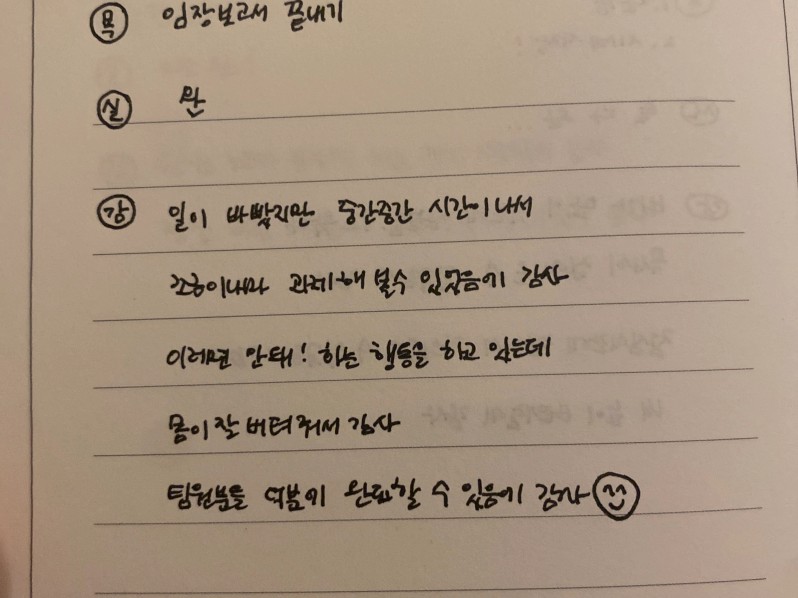 목 임장보고서 끝내기
실 완
감 일이 바빴지만 중간중간 시간이나서
조금이나마 과제해 볼수 있었음에 감사
이러면 안돼! 하는 행동을 하고 있는데
몸이 잘 버텨줘서 감사
팀원분들 덕분에 완료할 수 있음에 감사